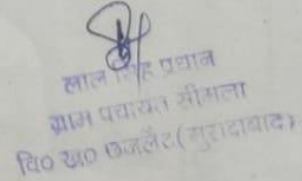 लाल सिंह प्रधान
ग्राम पंचायत सीमला
वि० ख० छजलैट (मुरादाबाद)